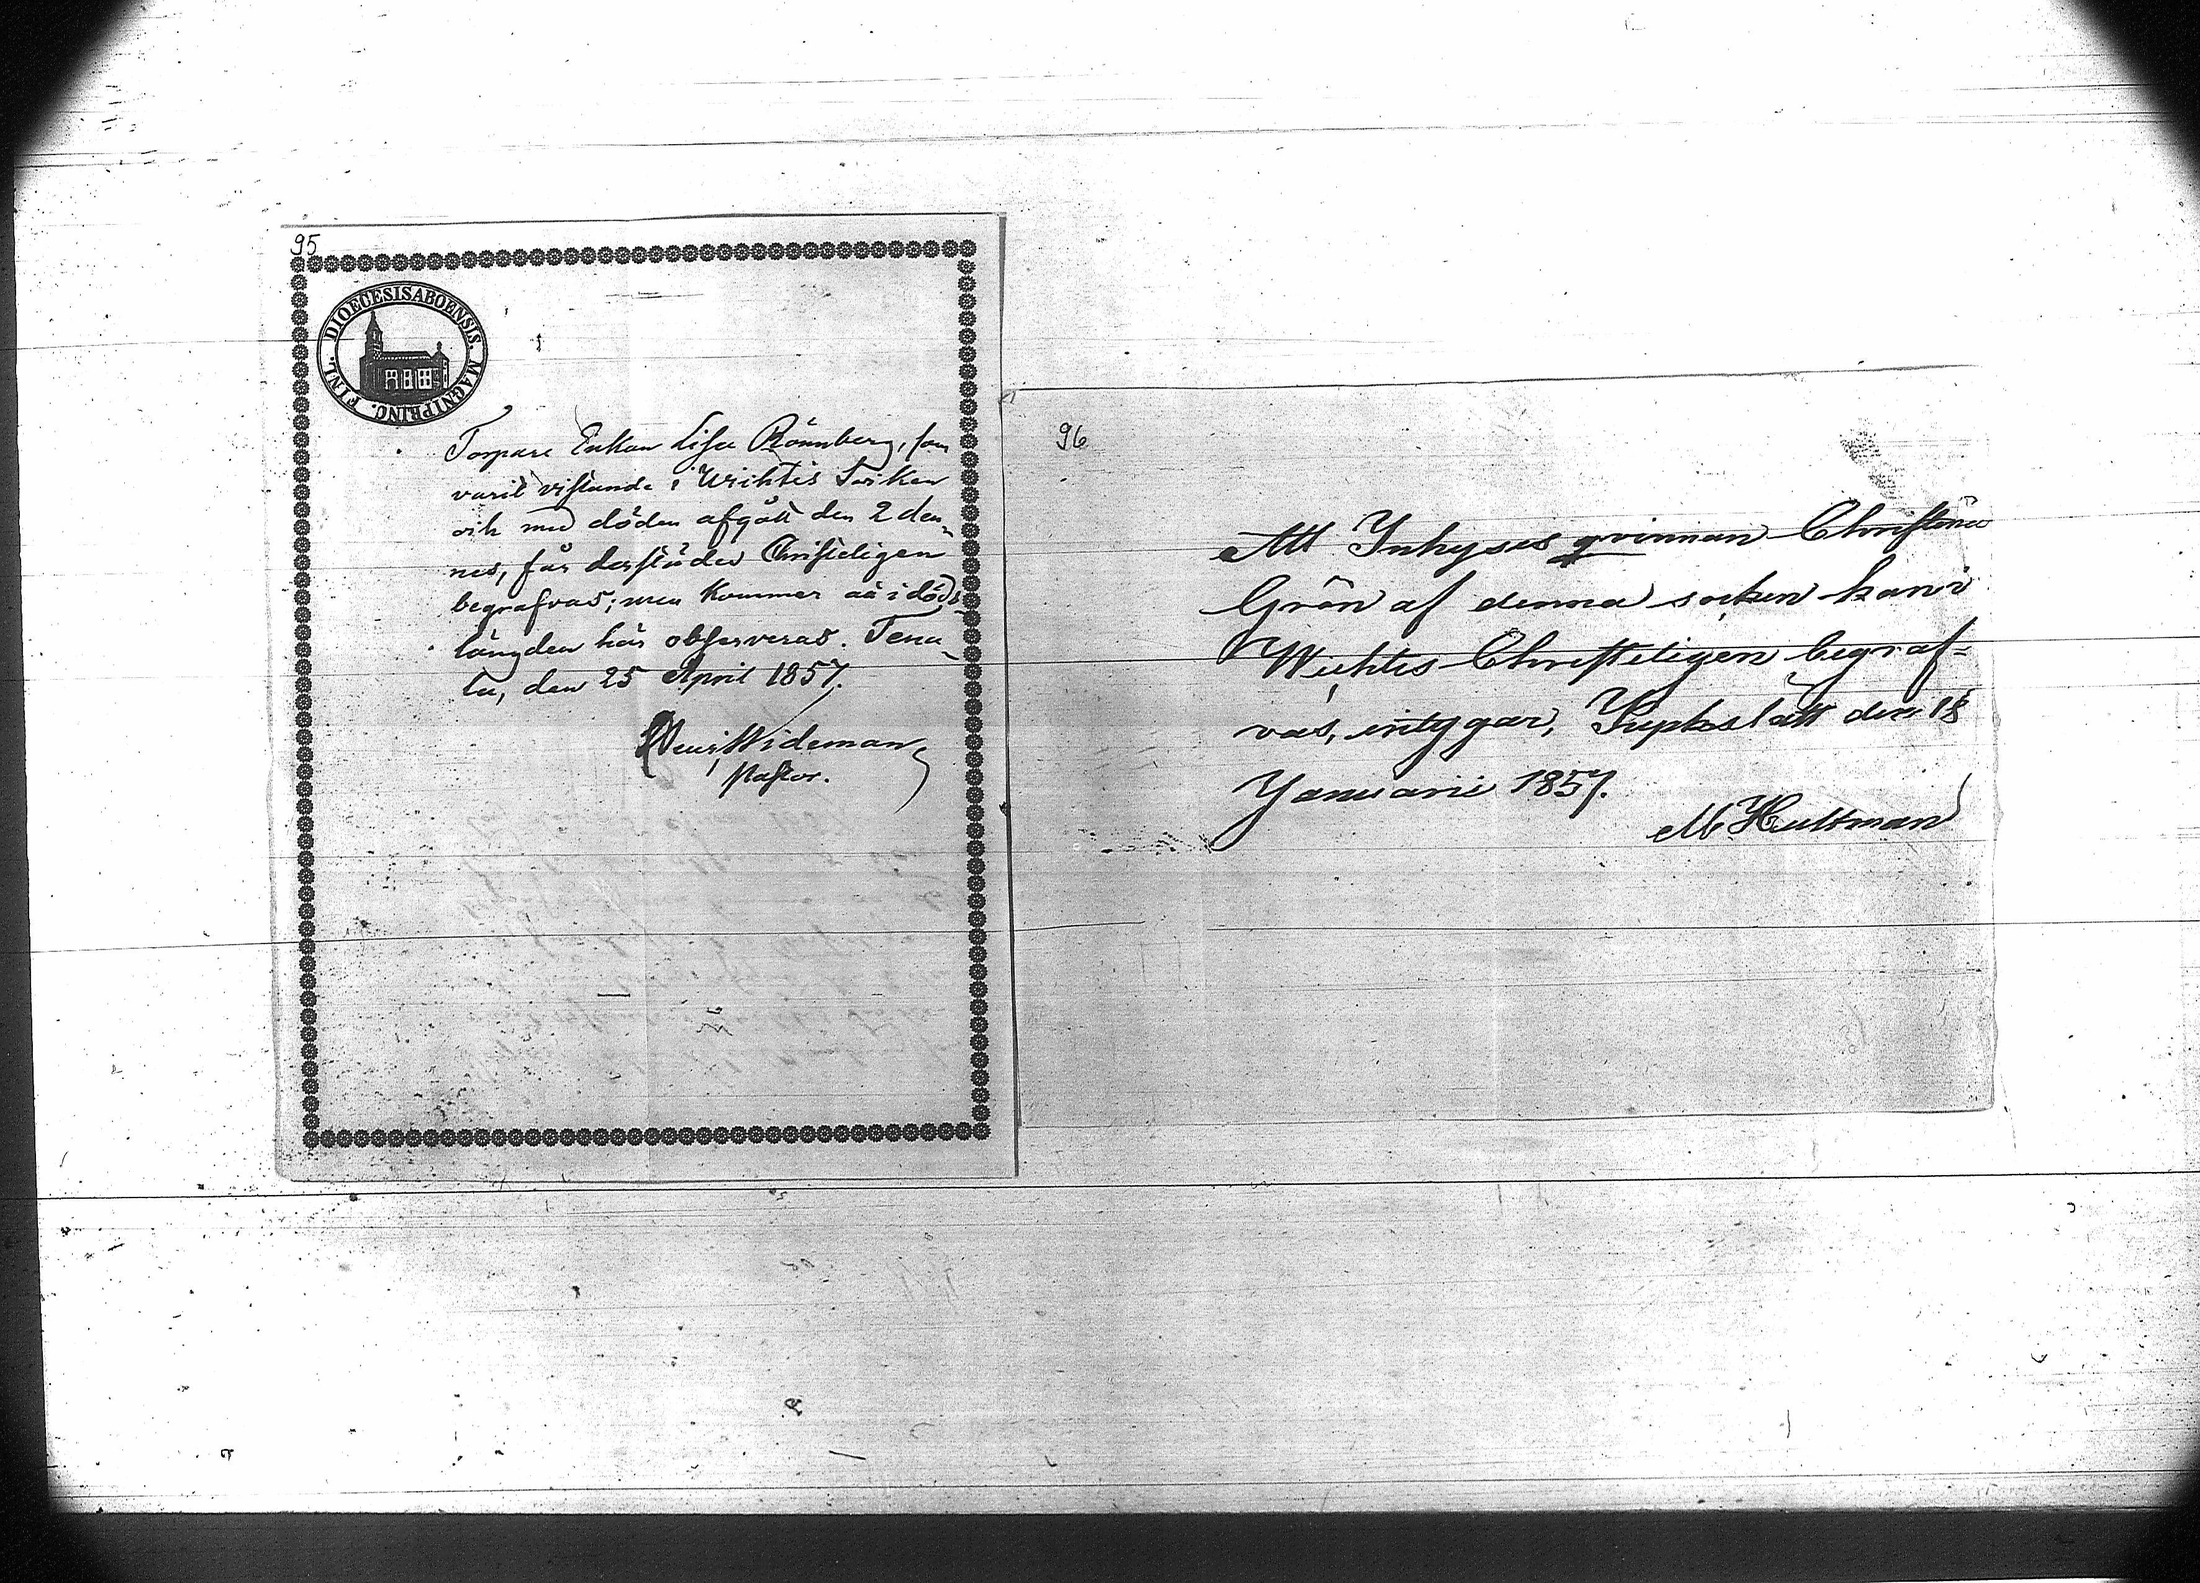 95
DIOECESIS ABOENSIS. MAGNI PRINC. FINL.
Torpare Enkan Lisa Rönnberg, som
varit vistande i Wichtis Socken
och med döden afgått den 2 den-
nes, får derstädes Christeligen
begrafvas; men kommer ää i döds
längden här observeras. Tena-
la, den 25 April 1857.
Wideman
Pastor.
96
Att Inhyses qvinnan Christina
Grön af denna socken kan i
Wichtis Christeligen begraf-
vas, intygar, Kyrkslätt den 18
Januarii 1857.
M Hultman